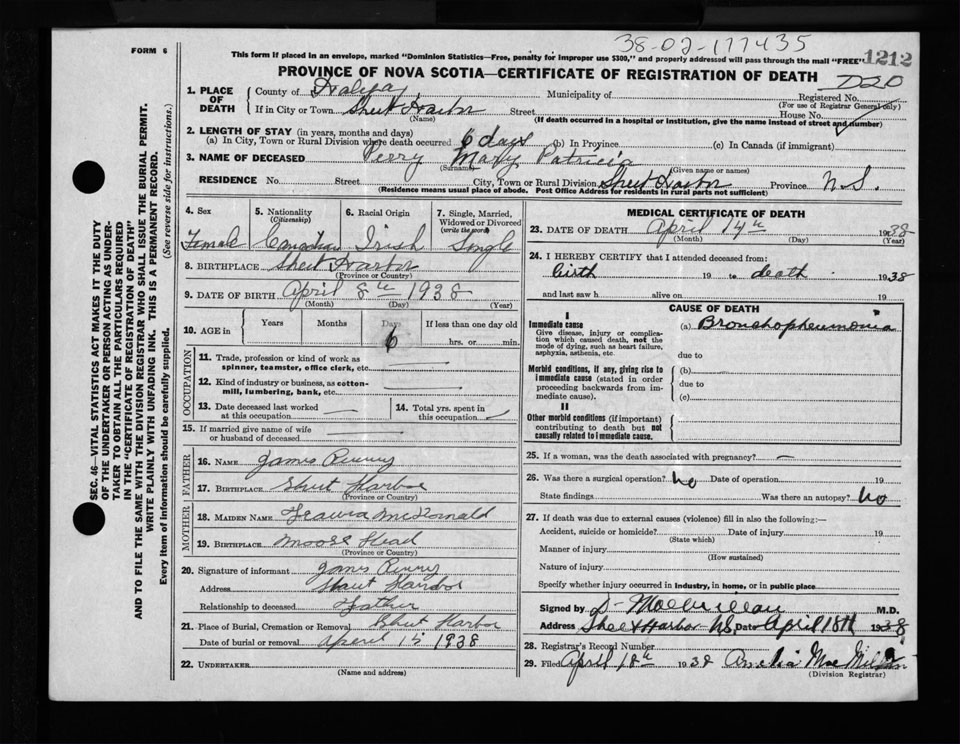 38-02-177435
FORM 6
This form if placed in an envelope, marked "Dominion Statistics—Free, penalty for improper use $300," and properly addressed will pass through the mail "FREE"
1212
PROVINCE OF NOVA SCOTIA—CERTIFICATE OF REGISTRATION OF DEATH
D20
1. PLACE OF DEATH
County of Halifax
Municipality of
Registered No.
(For use of Registrar General only)
If in City or Town Sheet Harbor Street House No.
(Name) (If death occurred in a hospital or institution, give the name instead of street and number)
2. LENGTH OF STAY (in years, months and days)
(a) In City, Town or Rural Division where death occurred 6 days (b) In Province (c) In Canada (if immigrant)
3. NAME OF DECEASED Perry Mary Patricia
(Surname) (Given name or names)
RESIDENCE No. Street City, Town or Rural Division Sheet Harbor Province N.S.
(Residence means usual place of abode. Post Office Address for residents in rural parts not sufficient)
4. Sex
5. Nationality (Citizenship)
6. Racial Origin
7. Single, Married, Widowed or Divorced (write the word)
Female Canadian Irish Single
8. BIRTHPLACE Sheet Harbor
(Province or Country)
9. DATE OF BIRTH April 8th 1938
(Month) (Day) (Year)
10. AGE in
Years Months Days If less than one day old
6 hrs. or min.
OCCUPATION
11. Trade, profession or kind of work as spinner, teamster, office clerk, etc.
12. Kind of industry or business, as cotton-mill, lumbering, bank, etc.
13. Date deceased last worked at this occupation
14. Total yrs. spent in this occupation
15. If married give name of wife or husband of deceased
FATHER
16. NAME James
17. BIRTHPLACE Sheet Harbor
(Province or Country)
MOTHER
18. MAIDEN NAME McDonald
19. BIRTHPLACE Moose Head
(Province or Country)
20. Signature of informant James
Address Sheet Harbor
Relationship to deceased Father
21. Place of Burial, Cremation or Removal Sheet Harbor
Date of burial or removal April 15 1938
22. UNDERTAKER
(Name and address)
MEDICAL CERTIFICATE OF DEATH
23. DATE OF DEATH April 14th 1938
(Month) (Day) (Year)
24. I HEREBY CERTIFY that I attended deceased from:
birth 19 to death 1938
and last saw h alive on 19
CAUSE OF DEATH
I
Immediate cause
Give disease, injury or complication which caused death, not the mode of dying, such as heart failure, asphyxia, asthenia, etc.
(a) Bronchopneumonia
due to
Morbid conditions, if any, giving rise to immediate cause (stated in order proceeding backwards from immediate cause).
(b)
due to
(c)
II
Other morbid conditions (if important) contributing to death but not causally related to immediate cause.
25. If a woman, was the death associated with pregnancy? —
26. Was there a surgical operation? No Date of operation 19
State findings Was there an autopsy? No
27. If death was due to external causes (violence) fill in also the following:—
Accident, suicide or homicide? Date of injury 19
(State which)
Manner of injury
(How sustained)
Nature of injury
Specify whether injury occurred in industry, in home, or in public place
Signed by D. MacMillan M.D.
Address Sheet Harbor NS Date April 18th 1938
28. Registrar's Record Number
29. Filed April 18th 1938 Amelia MacMillan
(Division Registrar)
SEC. 46—VITAL STATISTICS ACT MAKES IT THE DUTY
OF THE UNDERTAKER OR PERSON ACTING AS UNDER-
TAKER TO OBTAIN ALL THE PARTICULARS REQUIRED
IN THE "CERTIFICATE OF REGISTRATION OF DEATH"
AND TO FILE THE SAME WITH THE DIVISION REGISTRAR WHO SHALL ISSUE THE BURIAL PERMIT.
WRITE PLAINLY WITH UNFADING INK. THIS IS A PERMANENT RECORD.
Every item of information should be carefully supplied. (See reverse side for instructions.)